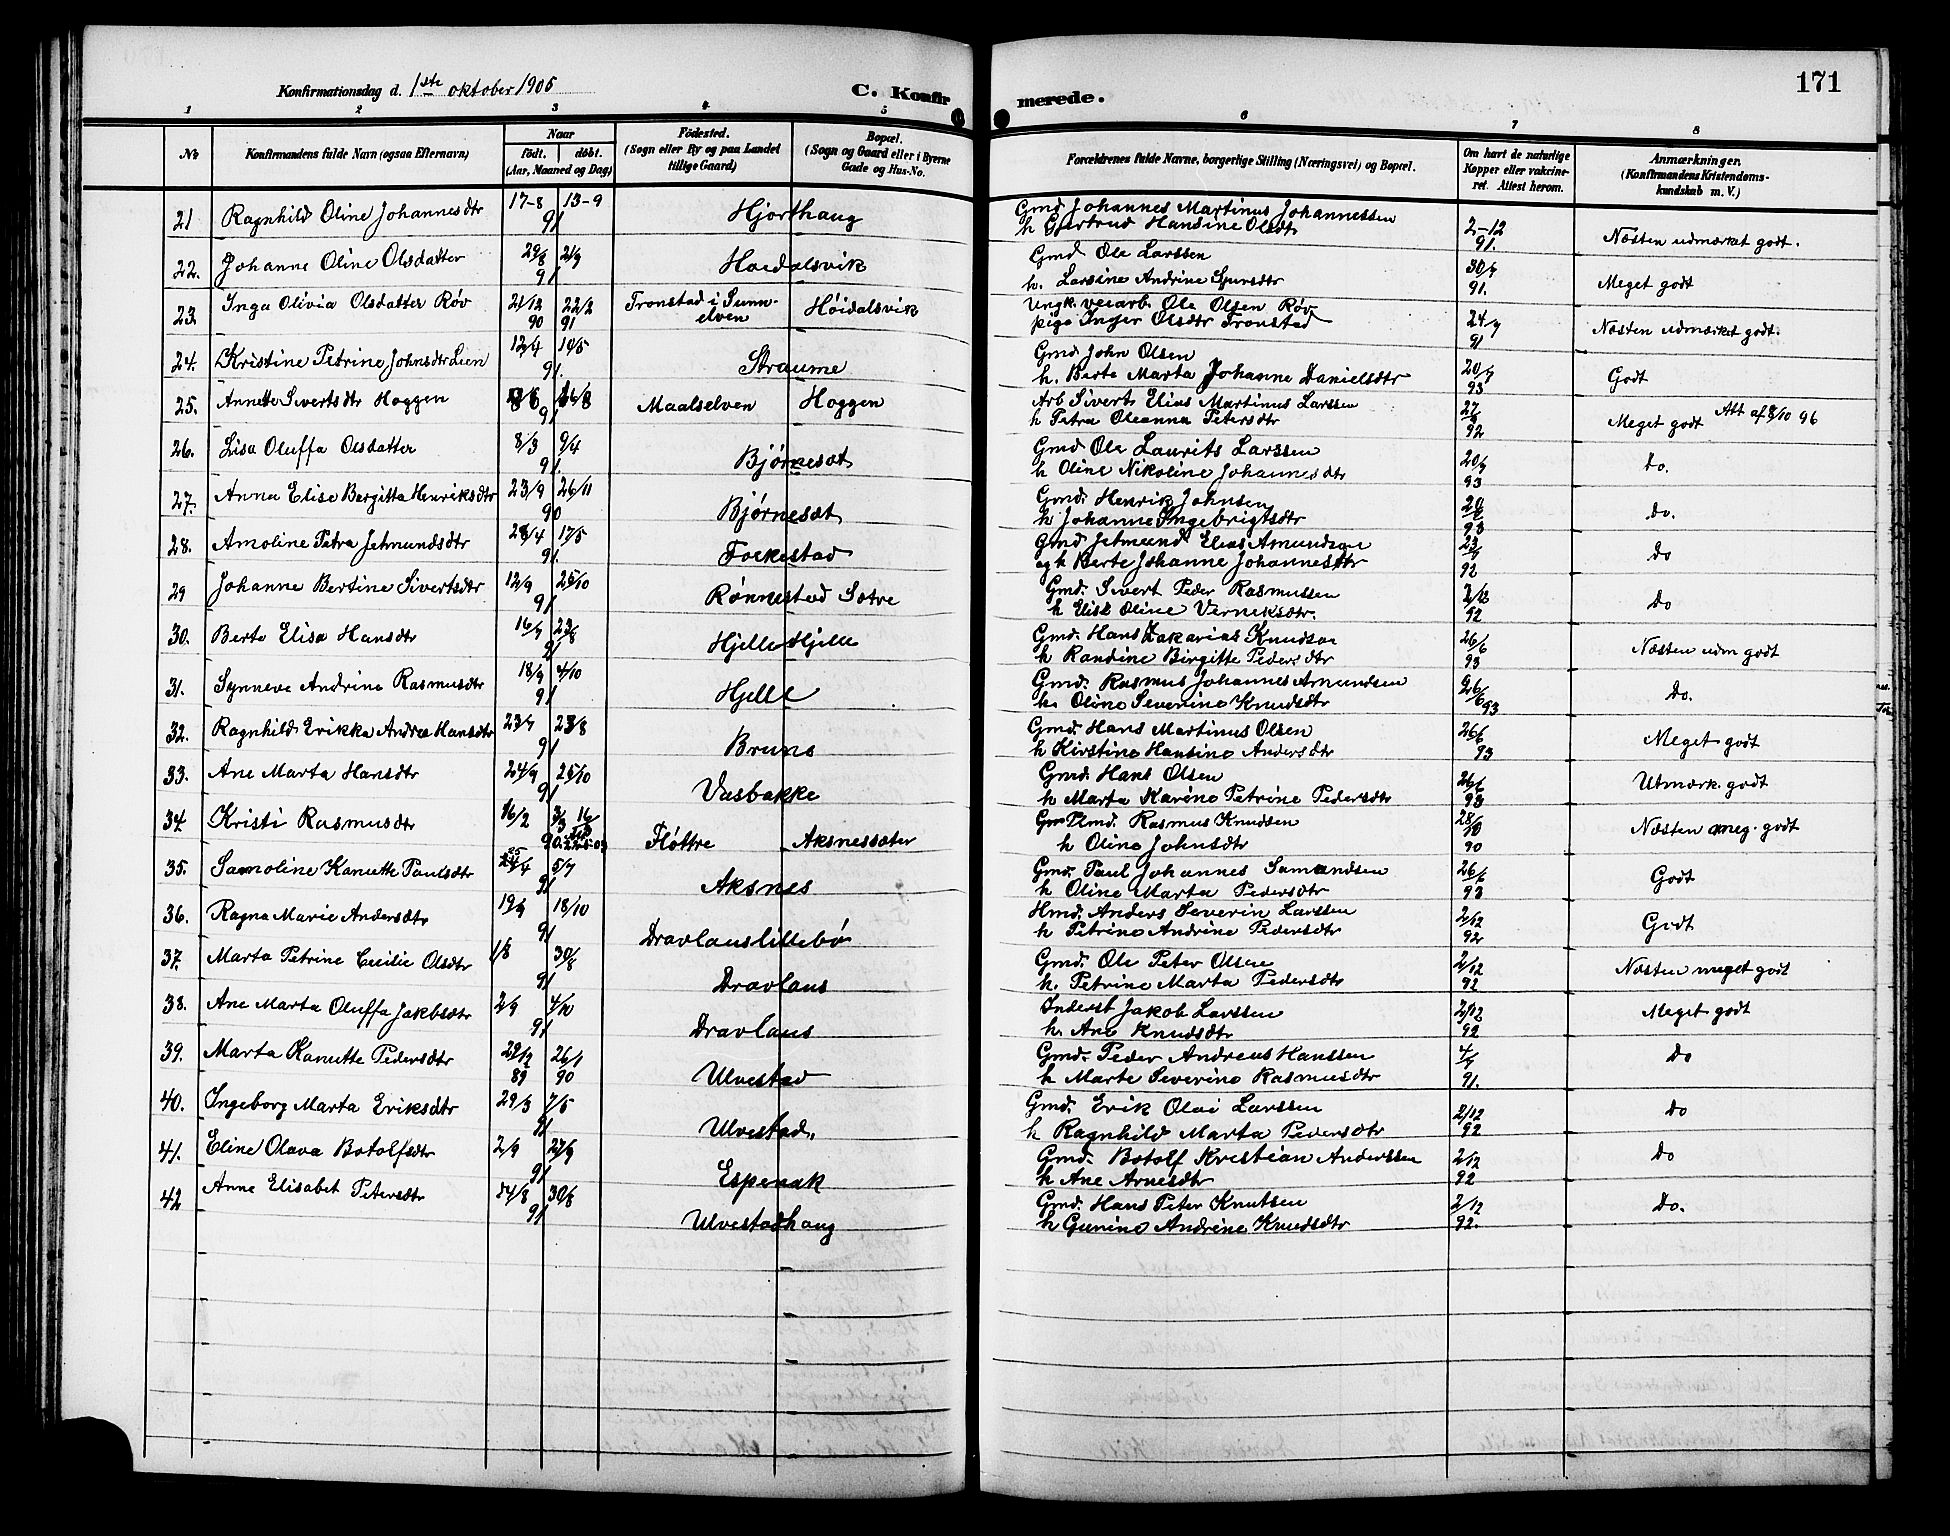 171
Konfirmationsdag d. 1ste oktober 1905
C. Konfirmerede.
1 2 3 4 5 6 7 8
No
Konfirmandens fulde Navn (ogsaa Efternavn)
Naar
født. døbt.
(Aar, Maaned og Dag)
Fødested.
(Sogn eller By og paa Landet
tillige Gaard)
Bopæl.
(Sogn og Gaard eller i Byerne
Gade og Hus-No.
Forældrenes fulde Navne, borgerlige Stilling (Næringsvei) og Bopæl.
Om havt de naturlige
Kopper eller vakcine-
ret. Attest herom.
Anmærkninger.
(Konfirmandens Kristendoms-
kundskab m. V.)
21 Ragnhild Oline Johannesdtr 17-8 13-9 91 Hjorthaug Gmd Johannes Martinus Johannessen
h Gjertrud Hansine Olsdtr 2-12 91. Næsten udmærket godt.
22. Johanne Oline Olsdatter 29/8 21/9 91 Hoidalsvik Gmd Ole Larssen
h. Larsine Andrine Spursdtr 30/9 91. Meget godt
23. Inga Olivia Olsdatter Røv 21/12 90 22/2 91 Tronstad i Sunn-
elven Høidalsvik Ungk. veiarb. Ole Olsen Røv
pige Inger Olsdtr Tronstad 24/9 91 Næsten udmærket godt.
24. Kristine Petrine Johnsdtr Lien 12/4 10/5 91. Straume Gmd John Olsen
h. Berte Marta Johanne Danielsdtr 20/9 93 Godt
25. Annette Sivertsdtr Hoggen 16/8 91 Maalselven Hoggen Arb Sivert Elias Martinus Larssen
h Petra Oleanna Petersdtr 92 Meget godt Att af 8/10 96
26. Lisa Oluffa Olsdatter 8/3 9/4 91. Bjørnesæt Gmd Ole Laurits Larssen
h Oline Nikoline Johannesdtr 20/9 93 Do.
27. Anna Elise Bergitta Henriksdtr 23/9 26/11 90 Bjørnesæt Gmd. Henrik Johnsen
h Johanne Ingebrigtsdtr 93 Do.
28. Amoline Petra Jetmundsdtr 28/4 17/5 91. Fockestad Gmd Jetmund Elias Amundsen
og h Berte Johanne Johannesdtr 92 Do
29 Johanne Bertine Sivertsdtr 12/9 25/10 91 Rønnestad Sætre Gmd. Sivert Peder Rasmussen
h Elise Oline Verneksdtr. 2/12 92 Do
30. Berte Elisa Hansdtr 16/7 23/8 91 Hjelle Hjelle Gmd. Hans Zakarias Knudsen
h Randine Birgitte Pedersdtr 26/6 93 Næsten udm godt
31. Synneve Andrine Rasmusdtr 18/9 4/10 91 Hjelle Gmd. Rasmus Johannes Amundsen
h. Oline Severine Knudsdtr 26/6 93 Do.
32. Ragnhild Erikka Andrea Hansdtr 23/7 23/8 91 Brune Gmd. Hans Martinus Olsen
h Kirstine Hansine Andersdtr 26/6 93 Meget godt
33. Ane Marta Hansdtr 24/9 25/10 91 Vasbakke Gmd. Hans Olsen
h Marta Karine Petrine Pedersdtr 26/6 93 Utmærk. godt
34. Kristi Rasmusdtr 16/2 3/3 90 Fløttre Aksnessæter Plmd. Rasmus Knudsen
h Oline Johnsdtr 90 Næsten meg. godt
35. Samoline Kanutte Paulsdtr 25/4 5/7 91 Aksnes Gmd. Paul Johannes Samundsen
h Oline Marta Pedersdtr 26/6 93 Godt
36. Ragna Marie Andersdtr 19/9 18/10 91 Dravlauslillebø Hmd. Anders Severin Larssen
h Petrine Andrine Pedersdtr 2/12 92 Godt
37. Marta Petrine Cecilie Olsdtr 1/8 30/8 91 Dravlaus Gmd. Ole Peter Olsen
h. Petrine Marta Pedersdtr 2/12 92 Næsten meget godt
38. Ane Marta Oluffa Jakbsdtr 2/9 4/10 91 Dravlaus Inderst Jakob Larssen
h. Ane Knudsdtr 2/12 92 Meget godt
39. Marta Kanutte Pedersdtr 29/12 89 26/1 90 Ulvestad Gmd. Peder Andreas Hanssen
h Marte Severine Rasmusdtr 4/9 91. Do
40. Ingeborg Marta Eriksdtr 29/3 7/5 91 Ulvestad. Gmd. Erik Olai Larssen
h Ragnhild Marta Pedersdtr 2/12 92 Do
41. Eline Olava Botolfsdtr 2/9 27/9 91 Espenak Gmd. Botolf Kristian Anderssen
h Ane Arnesdtr 2/12 92 Do
42 Anne Elisabet Petersdtr 14/8 30/8 91 Ulvestadhaug Gmd. Hans Peter Knutsen
h Gurine Andrine Knudsdtr 2/12 92. Do.